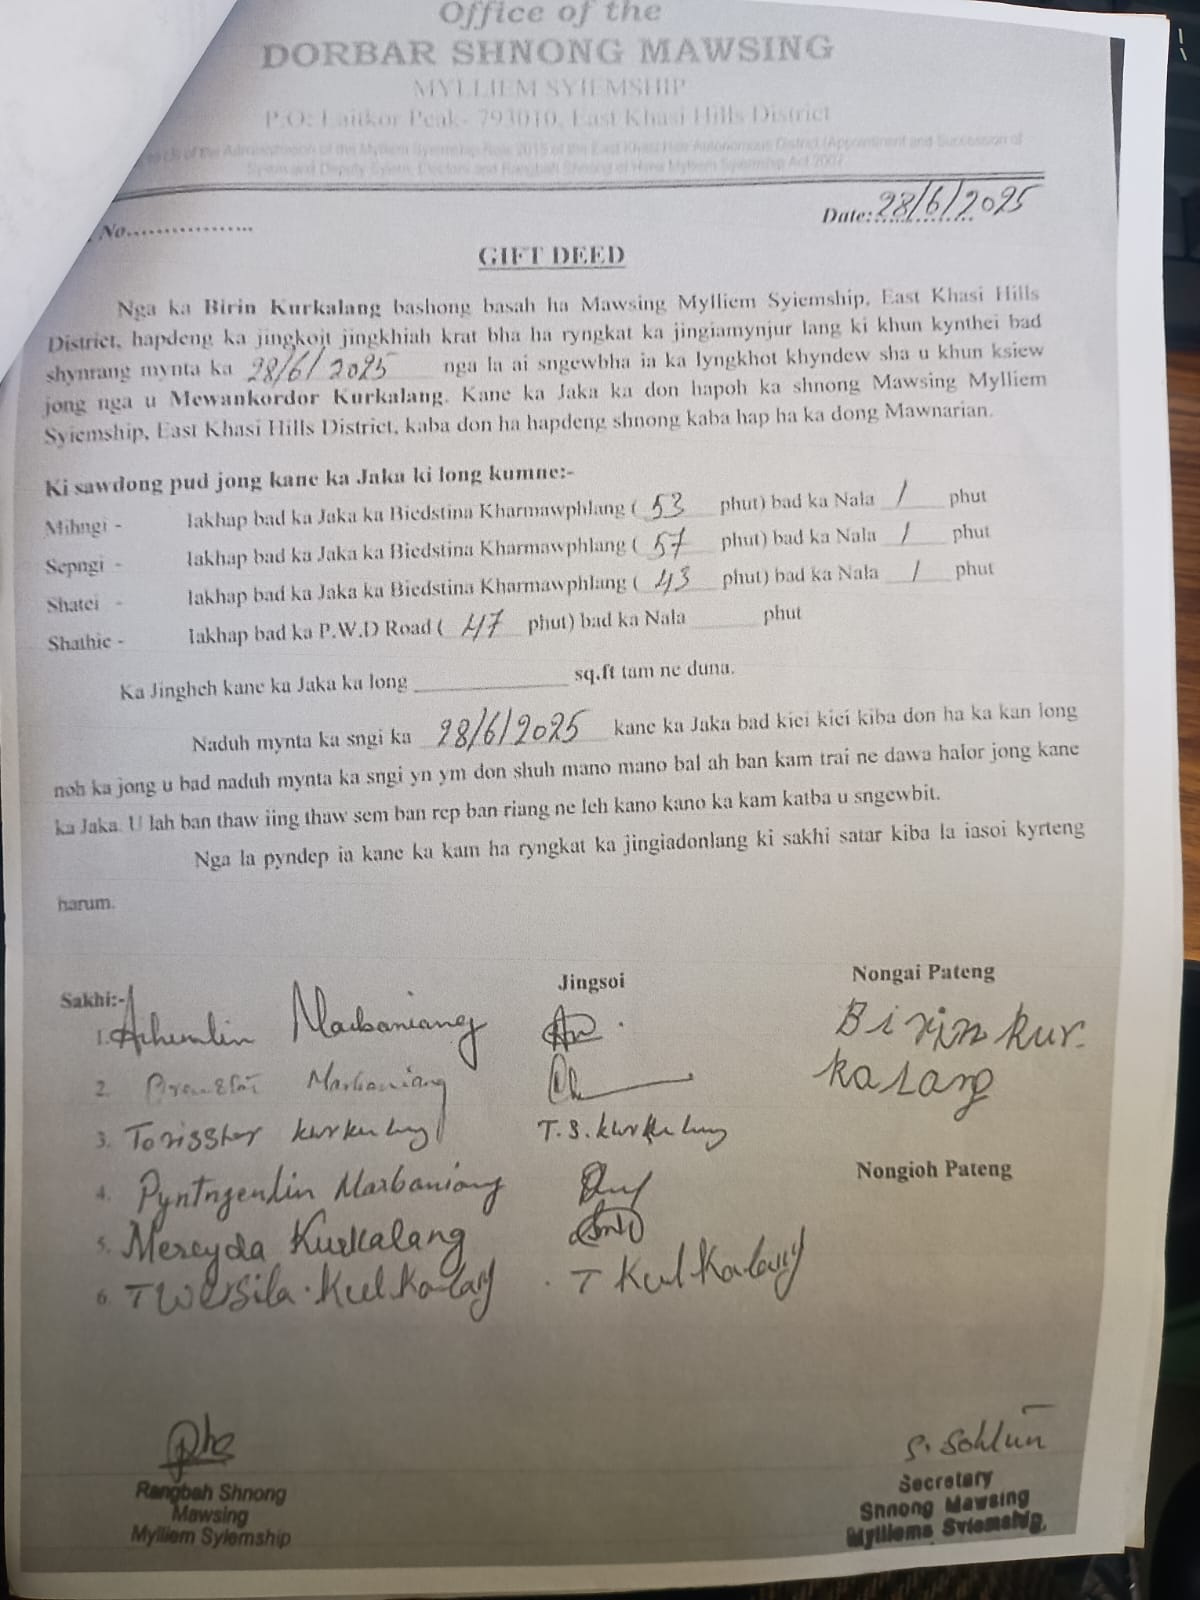 Office of the
DORBAR SHNONG MAWSING
MYLLIEM SYIEMSHIP
P.O: Laitkor Peak- 793010, East Khasi Hills District
of the Administration of the Mylliem Syiemship Rule 2015 of the East Khasi Hills Autonomous District (Appointment and Succession of
Syiem and Deputy Syiem, Electors and Rangbah Shnong of Hima Mylliem Syiemship Act 2007
No.................
Date: 28/6/2025
GIFT DEED
Nga ka Birin Kurkalang bashong basah ha Mawsing Mylliem Syiemship, East Khasi Hills
District, hapdeng ka jingkoit jingkhiah krat bha ha ryngkat ka jingiamynjur lang ki khun kynthei bad
shynrang mynta ka 28/6/2025 nga la ai sngewbha ia ka lyngkhot khyndew sha u khun ksiew
jong nga u Mewankordor Kurkalang. Kane ka Jaka ka don hapoh ka shnong Mawsing Mylliem
Syiemship, East Khasi Hills District, kaba don ha hapdeng shnong kaba hap ha ka dong Mawnarian.
Ki sawdong pud jong kane ka Jaka ki long kumne:-
Mihngi - Iakhap bad ka Jaka ka Biedstina Kharmawphlang ( 53 phut) bad ka Nala / phut
Sepngi - Iakhap bad ka Jaka ka Biedstina Kharmawphlang ( 57 phut) bad ka Nala / phut
Shatei - Iakhap bad ka Jaka ka Biedstina Kharmawphlang ( 43 phut) bad ka Nala / phut
Shathie - Iakhap bad ka P.W.D Road ( 47 phut) bad ka Nala ______ phut
Ka Jingheh kane ka Jaka ka long ______________ sq.ft tam ne duna.
Naduh mynta ka sngi ka 28/6/2025 kane ka Jaka bad kiei kiei kiba don ha ka kan long
noh ka jong u bad naduh mynta ka sngi yn ym don shuh mano mano bal ah ban kam trai ne dawa halor jong kane
ka Jaka. U lah ban thaw iing thaw sem ban rep ban riang ne leh kano kano ka kam katba u sngewbit.
Nga la pyndep ia kane ka kam ha ryngkat ka jingiadonlang ki sakhi satar kiba la iasoi kyrteng
harum.
Sakhi:- Jingsoi Nongai Pateng
1. Marbaniang
Birin kur.
kalang
2. Marbaniang
3. Torissher kurkalang T.S. kurkalang
4. Pyntngenlin Marbaniang
Nongioh Pateng
5. Mercyda Kurkalang
6. T Wersila. Kulkalang T Kulkalang
S. Sohlun
Rangbah Shnong
Mawsing
Mylliem Syiemship
Secretary
Shnong Mawsing
Mylliems Syiemship.